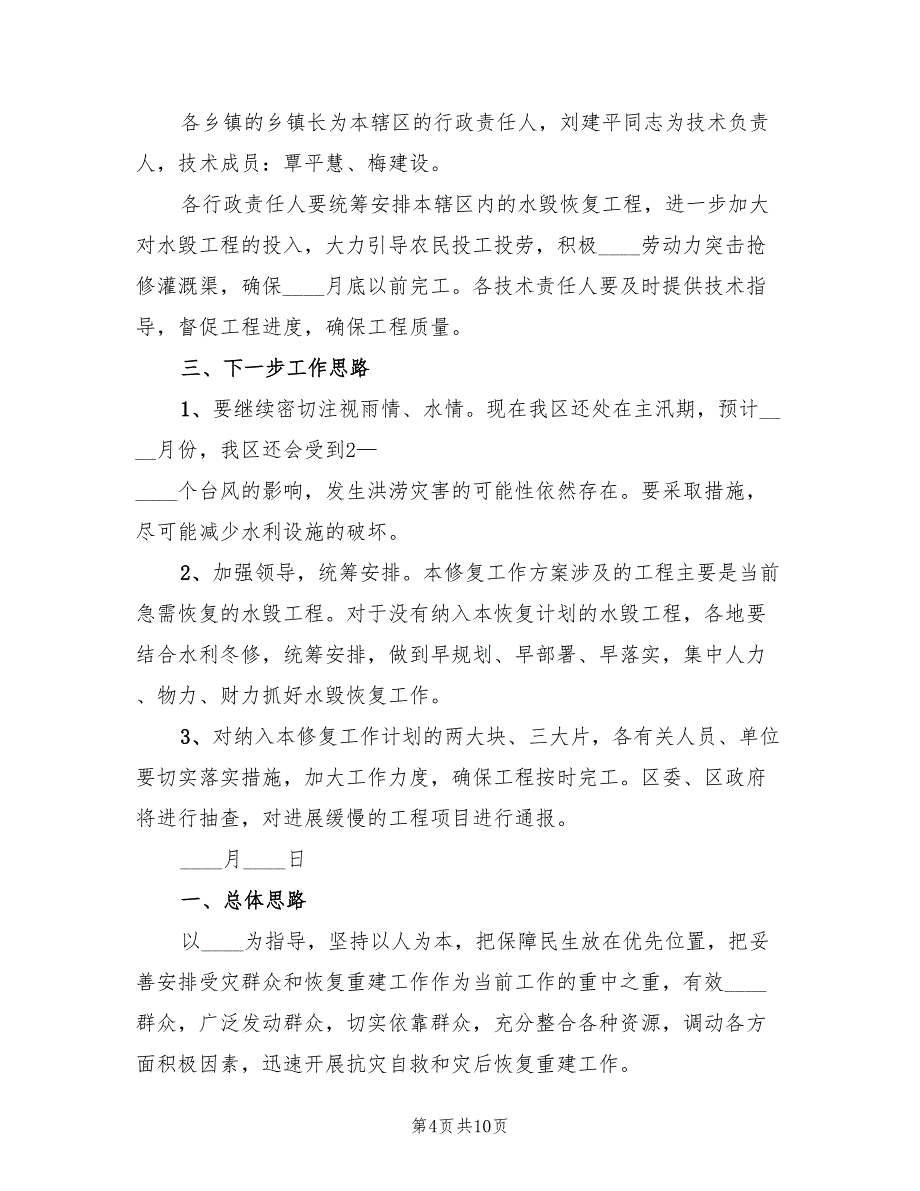 各乡镇的乡镇长为本辖区的行政责任人，刘建平同志为技术负责
人，技术成员：覃平慧、梅建设。
各行政责任人要统筹安排本辖区内的水毁恢复工程，进一步加大
对水毁工程的投入，大力引导农民投工投劳，积极____劳动力突击抢
修灌溉渠，确保____月底以前完工。各技术责任人要及时提供技术指
导，督促工程进度，确保工程质量。
三、下一步工作思路
1、要继续密切注视雨情、水情。现在我区还处在主汛期，预计__
__月份，我区还会受到2—
____个台风的影响，发生洪涝灾害的可能性依然存在。要采取措施，
尽可能减少水利设施的破坏。
2、加强领导，统筹安排。本修复工作方案涉及的工程主要是当前
急需恢复的水毁工程。对于没有纳入本恢复计划的水毁工程，各地要
结合水利冬修，统筹安排，做到早规划、早部署、早落实，集中人力
、物力、财力抓好水毁恢复工作。
3、对纳入本修复工作计划的两大块、三大片，各有关人员、单位
要切实落实措施，加大工作力度，确保工程按时完工。区委、区政府
将进行抽查，对进展缓慢的工程项目进行通报。
____月____日
一、总体思路
以____为指导，坚持以人为本，把保障民生放在优先位置，把妥
善安排受灾群众和恢复重建工作作为当前工作的重中之重，有效____
群众，广泛发动群众，切实依靠群众，充分整合各种资源，调动各方
面积极因素，迅速开展抗灾自救和灾后恢复重建工作。
第4页共10页